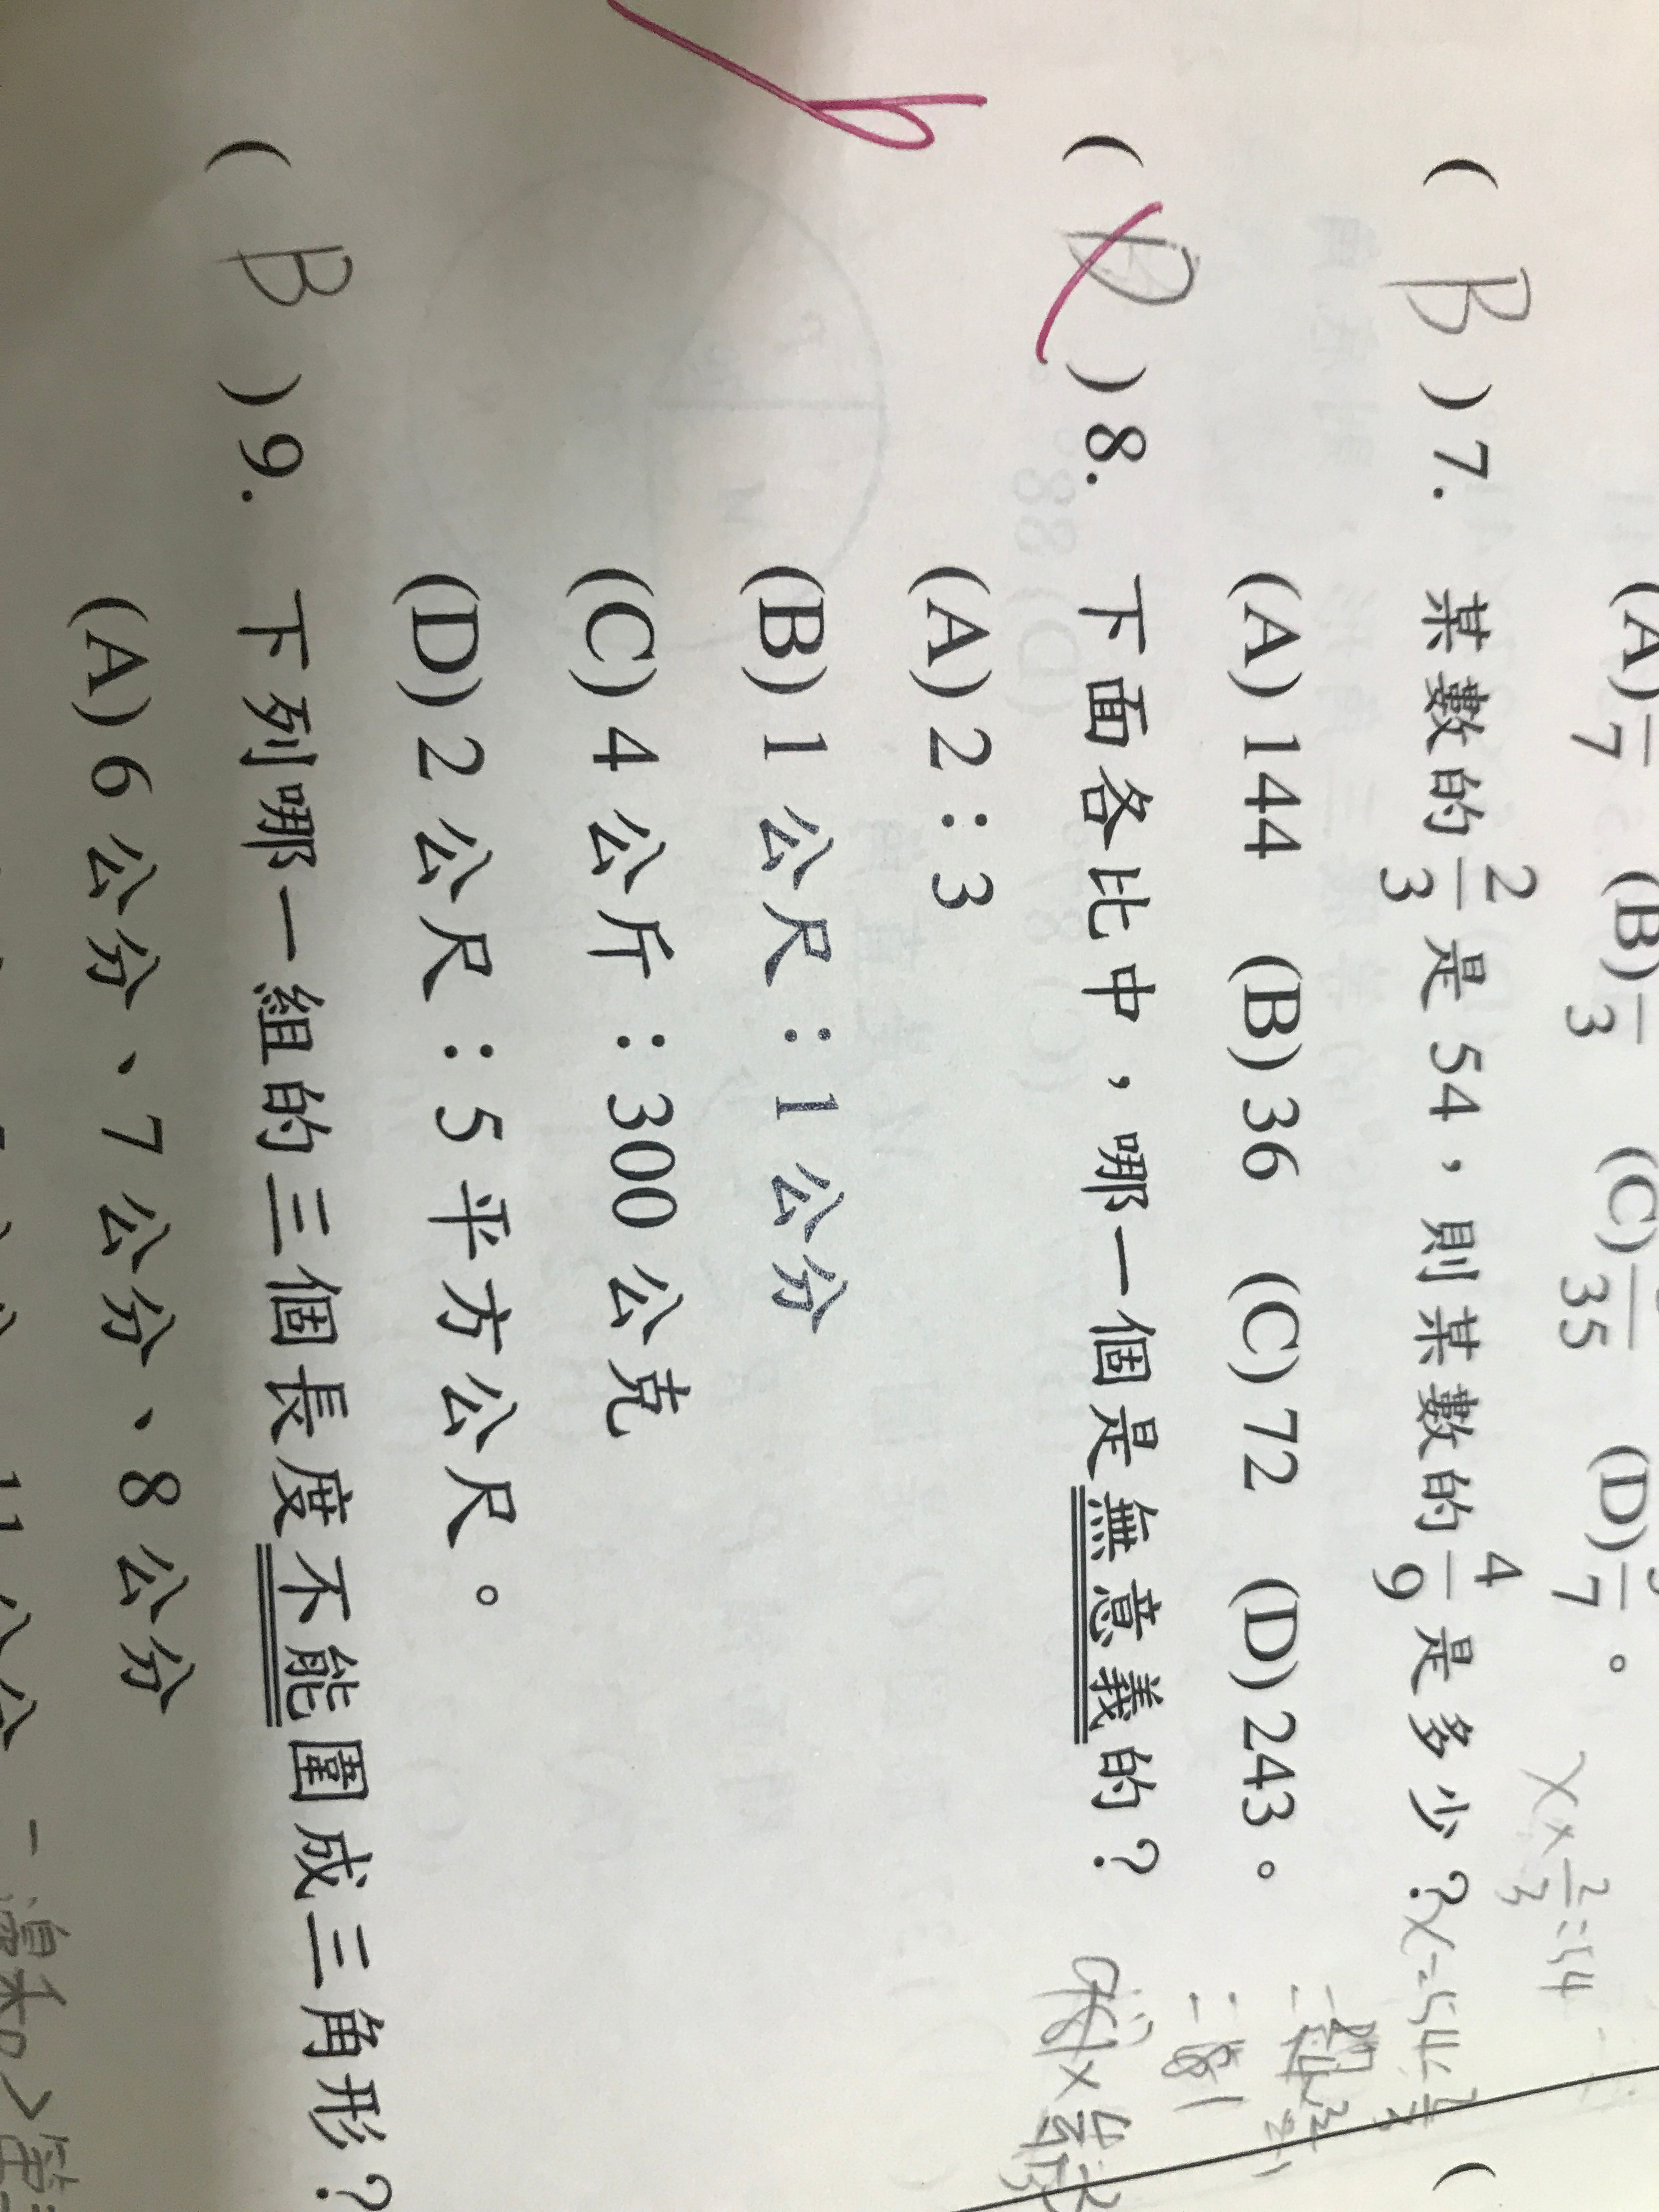 (A) 7 (B) 3 (C) 35 (D) 7 。
( B ) 7. 某數的 2/3 是 54,則某數的 4/9 是多少?
(A) 144 (B) 36 (C) 72 (D) 243。
( ) 8. 下面各比中,哪一個是無意義的?
(A) 2:3
(B) 1 公尺:1 公分
(C) 4 公斤:300 公克
(D) 2 公尺:5 平方公尺。
( B ) 9. 下列哪一組的三個長度不能圍成三角形?
(A) 6 公分、7 公分、8 公分
x× 2/3 =54